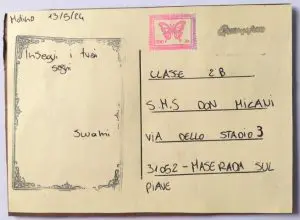 Molino 13/5/24
Insegui i tuoi
sogni
Swami
CLASSE 2B
S.M.S DON MILANI
VIA DELLO STADIO 3
31052 - MASERADA SUL
PIAVE